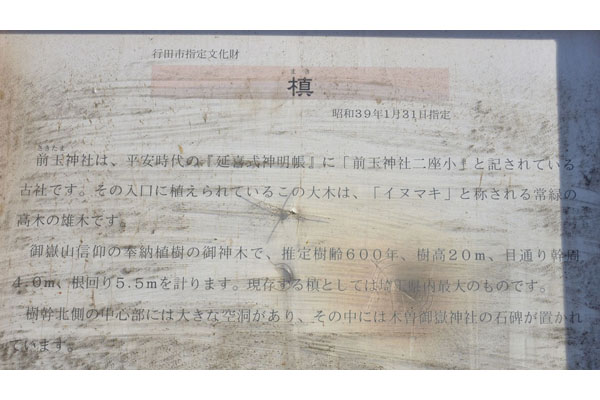 行田市指定文化財
まき
槙
昭和39年1月31日指定
さきたま
前玉神社は、平安時代の『延喜式神明帳』に「前玉神社二座小」と記されている
古社です。その入口に植えられているこの大木は、「イヌマキ」と称される常緑の
高木の雄木です。
御嶽山信仰の奉納植樹の御神木で、推定樹齢600年、樹高20m、目通り幹周
4.0m、根回り5.5mを計ります。現存する槙としては埼玉県内最大のものです。
樹幹北側の中心部には大きな空洞があり、その中には木曽御嶽神社の石碑が置かれ
ています。